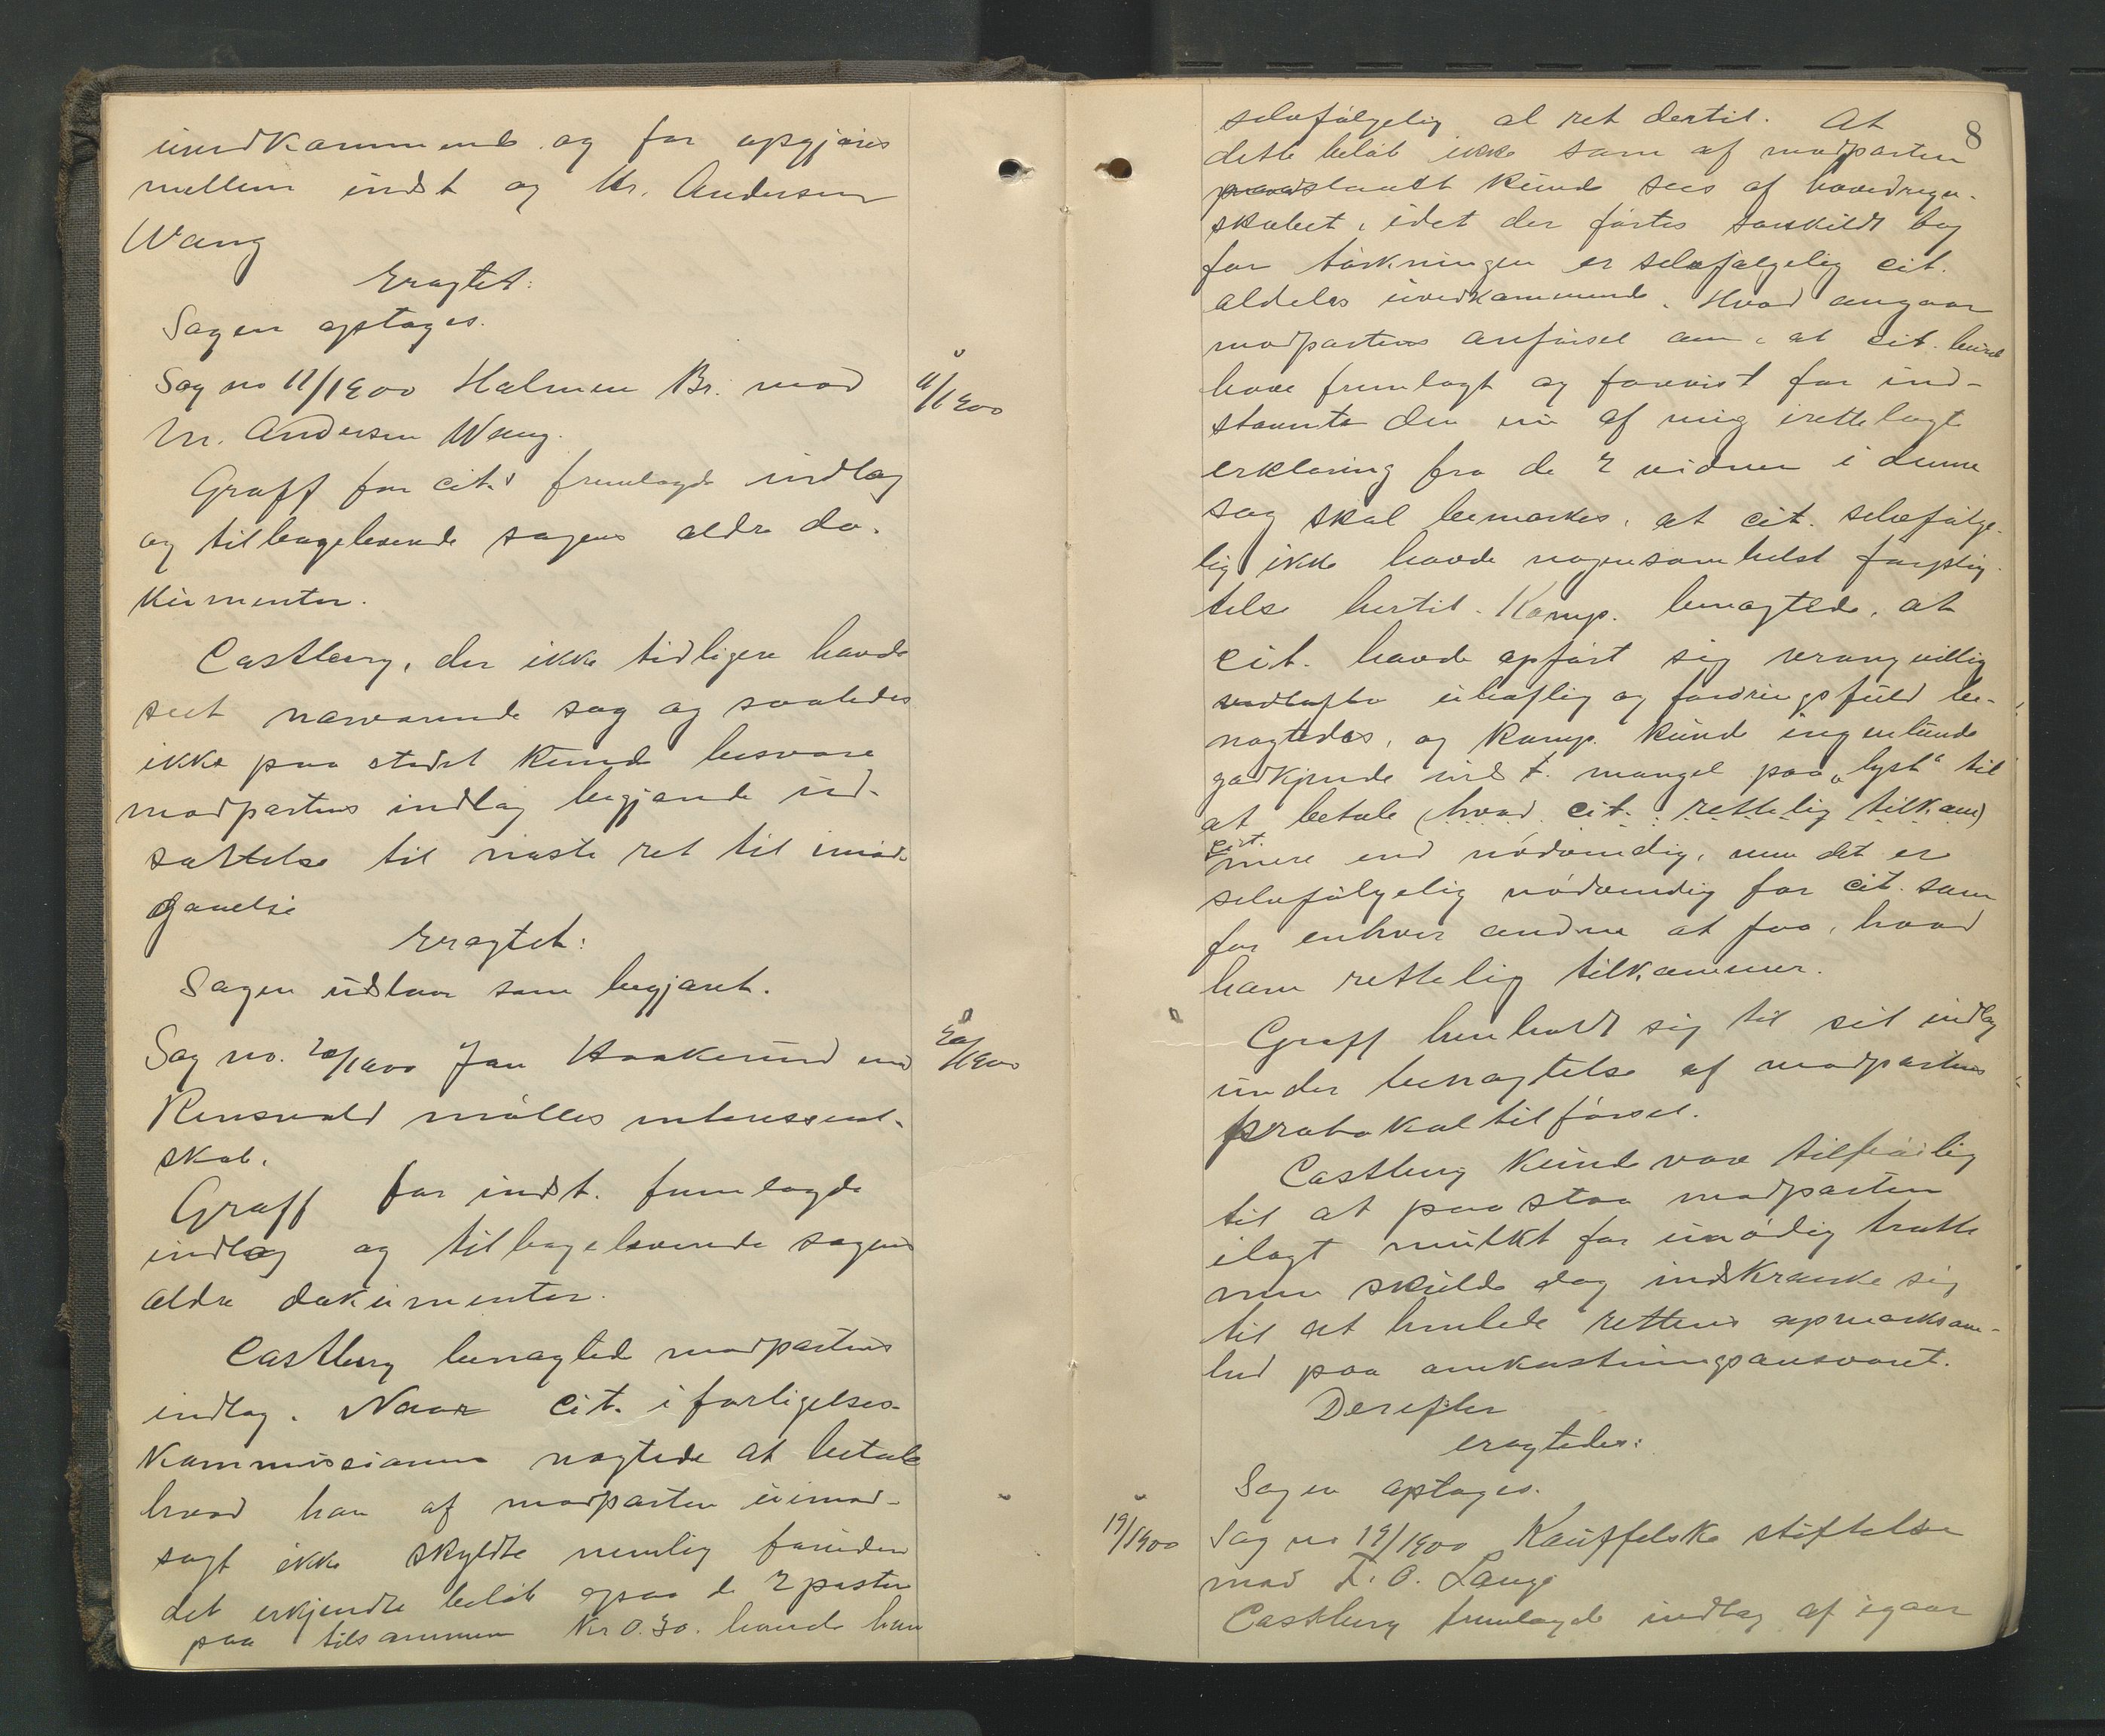 uvedkommende og far opgjøres
mellem indst og Kr. Andersen
Wang
Eragtet:
Sagen optages.
Sag no 11/1900 Halmen Br. mod
M. Andersen Wang.
11/1900
Graff for cit. fremlagde indlæg
og tilbageleverede sagens ældre do-
kumenter.
Castberg, der ikke tidligere havde
seet nærværende sag og saaledes
ikke paa stedet kunde besvare
modpartens indlæg begjærede ud-
sættelse til næste ret til imøde-
gaaelse
Eragtet:
Sagen udstaar som begjæret.
Sag no. 20/1900 Jan Haakerud mod
20/1900
Rensvold mølles interessent-
skab.
Graff for indst. fremlagde
indlæg og tilbageleverede sagens
ældre dokumenter.
Castberg benægted modpartens
indlæg. Naar cit. i forligelses-
kommissionen nægtede at betale
hvad han af modparten uimod-
sagt ikke skyldte nemlig foruden
det erkjendte beløb ogsaa de 2 poster
paa tilsammen Kr 0.30. havde han
8
selvfølgelig al ret dertil. At
dette beløb ikke som af modparten
paastaaet kunde sees af hovedregn-
skabet, idet der førtes særskildt bog
for tørkningen er selvfølgelig cit.
aldeles uvedkommende. Hvad angaar
modpartens anførsel om, at cit. burde
have fremlagt og forevist for ind-
stævnte den nu af mig irettelagte
erklæring fra de 2 vidner i denne
sag skal bemærkes, at cit. selvfølge-
lig ikke havde nogensomhelst forplig-
telse hertil. Komp. benægtede, at
cit. havde opført sig vrangvillig
uhøflig og fordringsfuld be-
nægtedes, og komp. kunde ingenlunde
godkjende indst. mangel paa „lyst“ til
at betale (hvad cit. rettelig tilkom)
cit.
mere end nødvendig, men det er
selvfølgelig nødvendig for cit. som
for enhver anden at faa, hvad
ham rettelig tilkommer.
Graff henholdt sig til sit indlæg
under benægtelse af modpartens
protokoltilførsel.
Castberg kunde være tilbøielig
til at paastaa modparten
ilagt mulkt for unødig trætte
men skulde dog indskrænke sig
til at henlede rettens opmærksom-
hed paa omkostningsansvaret.
Derefter
eragtedes:
Sagen optages.
19/1900
Sag no 19/1900 Kauffelske stiftelse
mod L. O. Lange
Castberg fremlagde indlæg af igaar